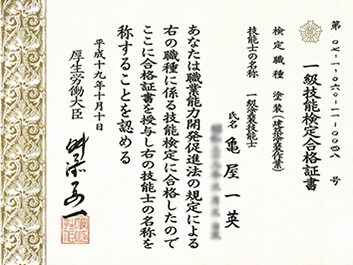 第〇七-一-〇六〇-二一-〇〇四八号
一級技能検定合格証書
検定職種 塗装(建築塗装作業)
技能士の名称 一級塗装技能士
氏名 亀屋一英
あなたは職業能力開発促進法の規定による
右の職種に係る技能検定に合格したので
ここに合格証書を授与し右の技能士の名称を
称することを認める
平成十九年十月十日
厚生労働大臣
舛添要一